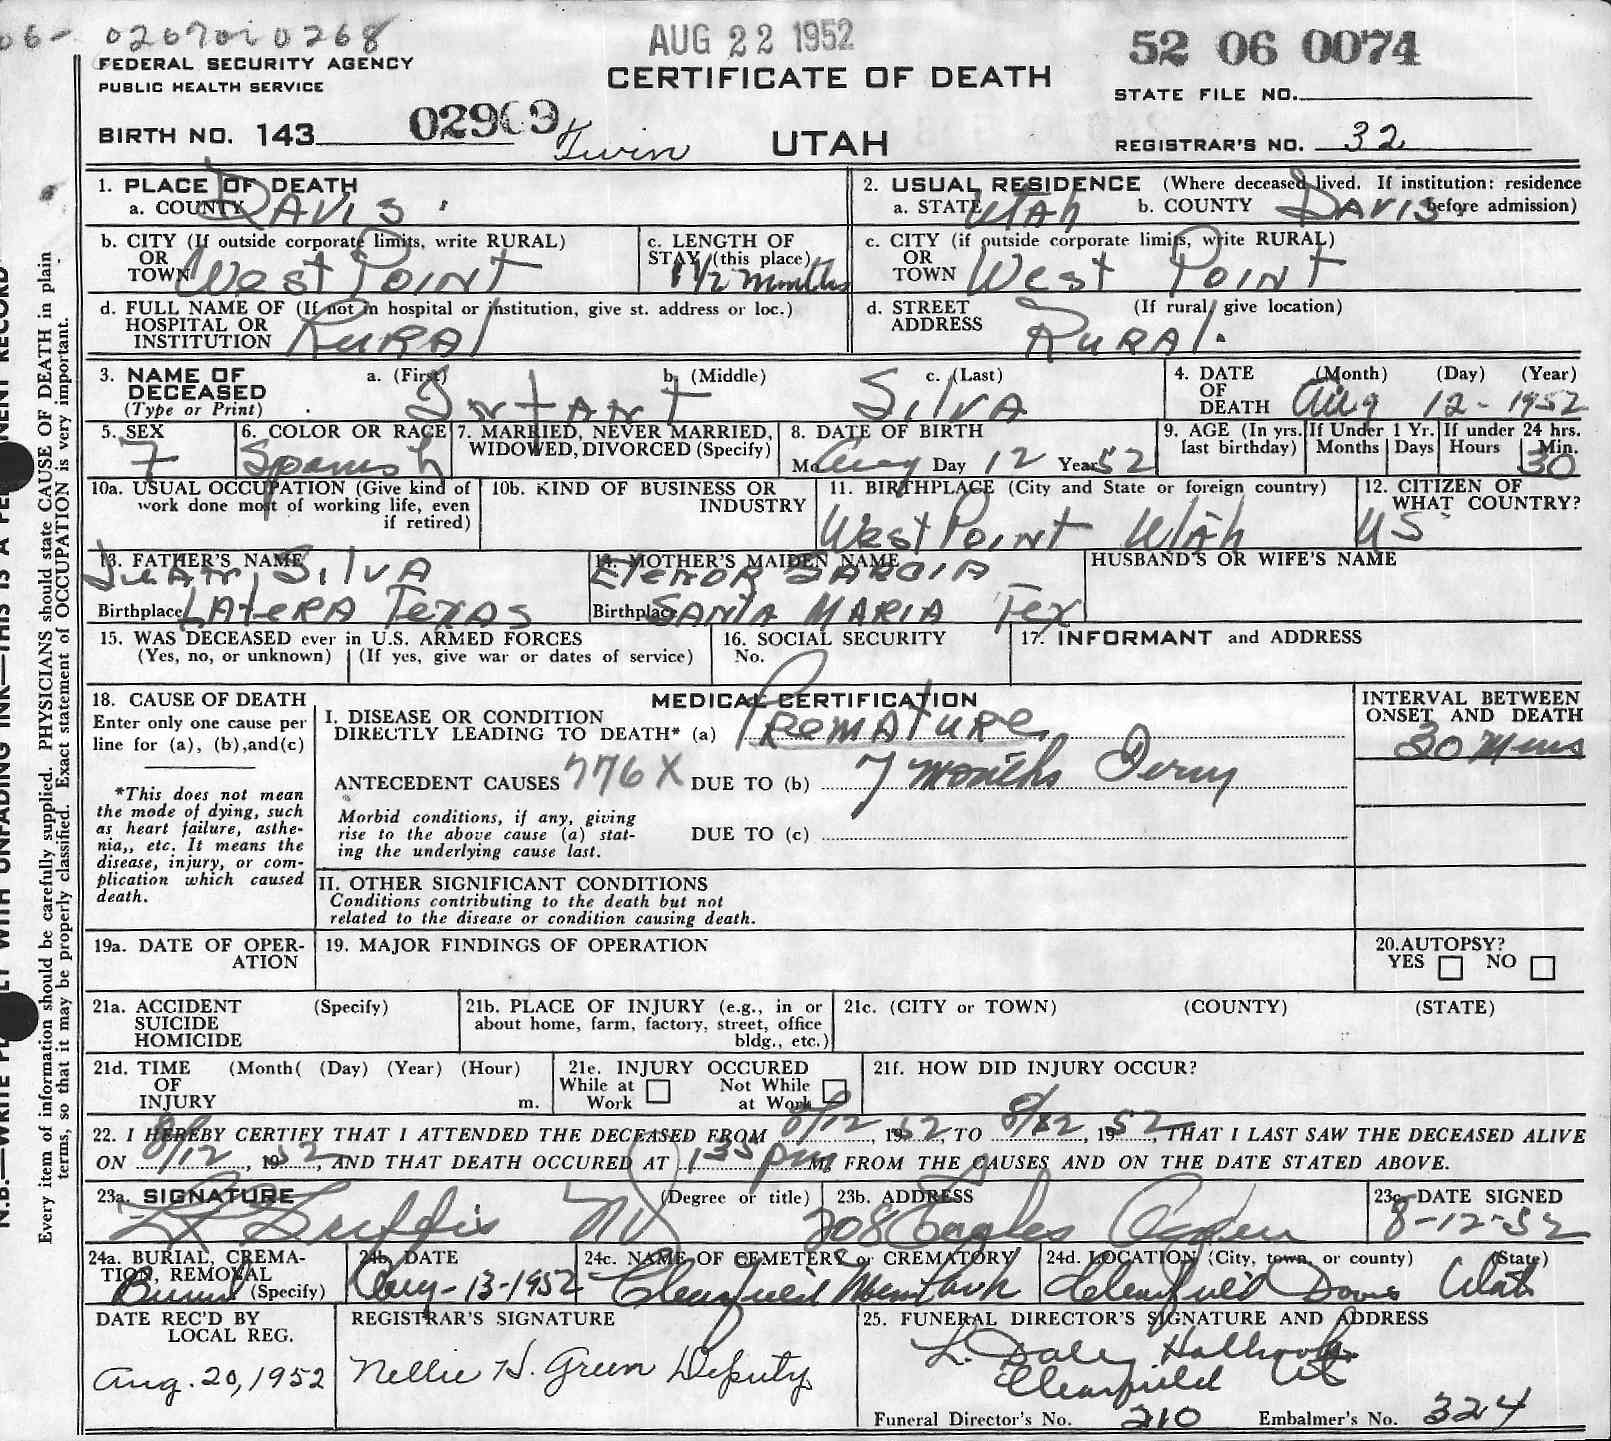 06- 0267010268
AUG 22 1952
52 06 0074
FEDERAL SECURITY AGENCY
PUBLIC HEALTH SERVICE
CERTIFICATE OF DEATH
STATE FILE NO.
BIRTH NO. 143 02909 Twin
UTAH
REGISTRAR'S NO. 32
1. PLACE OF DEATH
a. COUNTY DAVIS
2. USUAL RESIDENCE (Where deceased lived. If institution: residence before admission)
a. STATE Utah b. COUNTY DAVIS
b. CITY (If outside corporate limits, write RURAL) OR TOWN West Point
c. LENGTH OF STAY (this place) 1 1/2 months
c. CITY (if outside corporate limits, write RURAL) OR TOWN West Point
d. FULL NAME OF (If not in hospital or institution, give st. address or loc.) HOSPITAL OR INSTITUTION RURAl
d. STREET ADDRESS (If rural, give location) RURAl.
3. NAME OF DECEASED (Type or Print) a. (First) b. (Middle) c. (Last)
Intant Silva
4. DATE OF DEATH (Month) (Day) (Year) Aug 12-1952
5. SEX 7
6. COLOR OR RACE Spanish
7. MARRIED, NEVER MARRIED, WIDOWED, DIVORCED (Specify)
8. DATE OF BIRTH Mo. Aug Day 12 Year 52
9. AGE (In yrs. last birthday) If Under 1 Yr. Months Days If under 24 hrs. Hours Min. 30
10a. USUAL OCCUPATION (Give kind of work done most of working life, even if retired)
10b. KIND OF BUSINESS OR INDUSTRY
11. BIRTHPLACE (City and State or foreign country) West Point Utah
12. CITIZEN OF WHAT COUNTRY? US
13. FATHER'S NAME Juan Silva
Birthplace LAteRA TexAS
14. MOTHER'S MAIDEN NAME Elenor GARCIA
Birthplace SANTA MARIA Tex
HUSBAND'S OR WIFE'S NAME
15. WAS DECEASED ever in U.S. ARMED FORCES (Yes, no, or unknown) (If yes, give war or dates of service)
16. SOCIAL SECURITY No.
17. INFORMANT and ADDRESS
18. CAUSE OF DEATH
Enter only one cause per line for (a), (b), and (c)
*This does not mean the mode of dying, such as heart failure, asthenia,, etc. It means the disease, injury, or complication which caused death.
MEDICAL CERTIFICATION
I. DISEASE OR CONDITION DIRECTLY LEADING TO DEATH* (a) Premature
INTERVAL BETWEEN ONSET AND DEATH
30 Mins
ANTECEDENT CAUSES 776X DUE TO (b) 7 months
Morbid conditions, if any, giving rise to the above cause (a) stating the underlying cause last.
DUE TO (c)
II. OTHER SIGNIFICANT CONDITIONS
Conditions contributing to the death but not related to the disease or condition causing death.
19a. DATE OF OPERATION
19. MAJOR FINDINGS OF OPERATION
20. AUTOPSY? YES NO
21a. ACCIDENT SUICIDE HOMICIDE (Specify)
21b. PLACE OF INJURY (e.g., in or about home, farm, factory, street, office bldg., etc.)
21c. (CITY or TOWN) (COUNTY) (STATE)
21d. TIME OF INJURY (Month( (Day) (Year) (Hour) m.
21e. INJURY OCCURED While at Work Not While at Work
21f. HOW DID INJURY OCCUR?
22. I HEREBY CERTIFY THAT I ATTENDED THE DECEASED FROM 8/12, 1952, TO 8/12, 1952, THAT I LAST SAW THE DECEASED ALIVE
ON 8/12, 1952, AND THAT DEATH OCCURED AT 135 pm M, FROM THE CAUSES AND ON THE DATE STATED ABOVE.
23a. SIGNATURE (Degree or title) MD
23b. ADDRESS 208 Eagles Ogden
23c. DATE SIGNED 8-12-52
24a. BURIAL, CREMATION, REMOVAL (Specify) Burial
24b. DATE Aug-13-1952
24c. NAME OF CEMETERY or CREMATORY Clearfield Mem Park
24d. LOCATION (City, town, or county) (State) Clearfield Davis Utah
DATE REC'D BY LOCAL REG. Aug. 20, 1952
REGISTRAR'S SIGNATURE Nellie H. Green Deputy
25. FUNERAL DIRECTOR'S SIGNATURE AND ADDRESS
L. Daley Holbrook
Clearfield Ut
Funeral Director's No. 210 Embalmer's No. 324
Every item of information should be carefully supplied. PHYSICIANS should state CAUSE OF DEATH in plain
terms, so that it may be properly classified. Exact statement of OCCUPATION is very important.